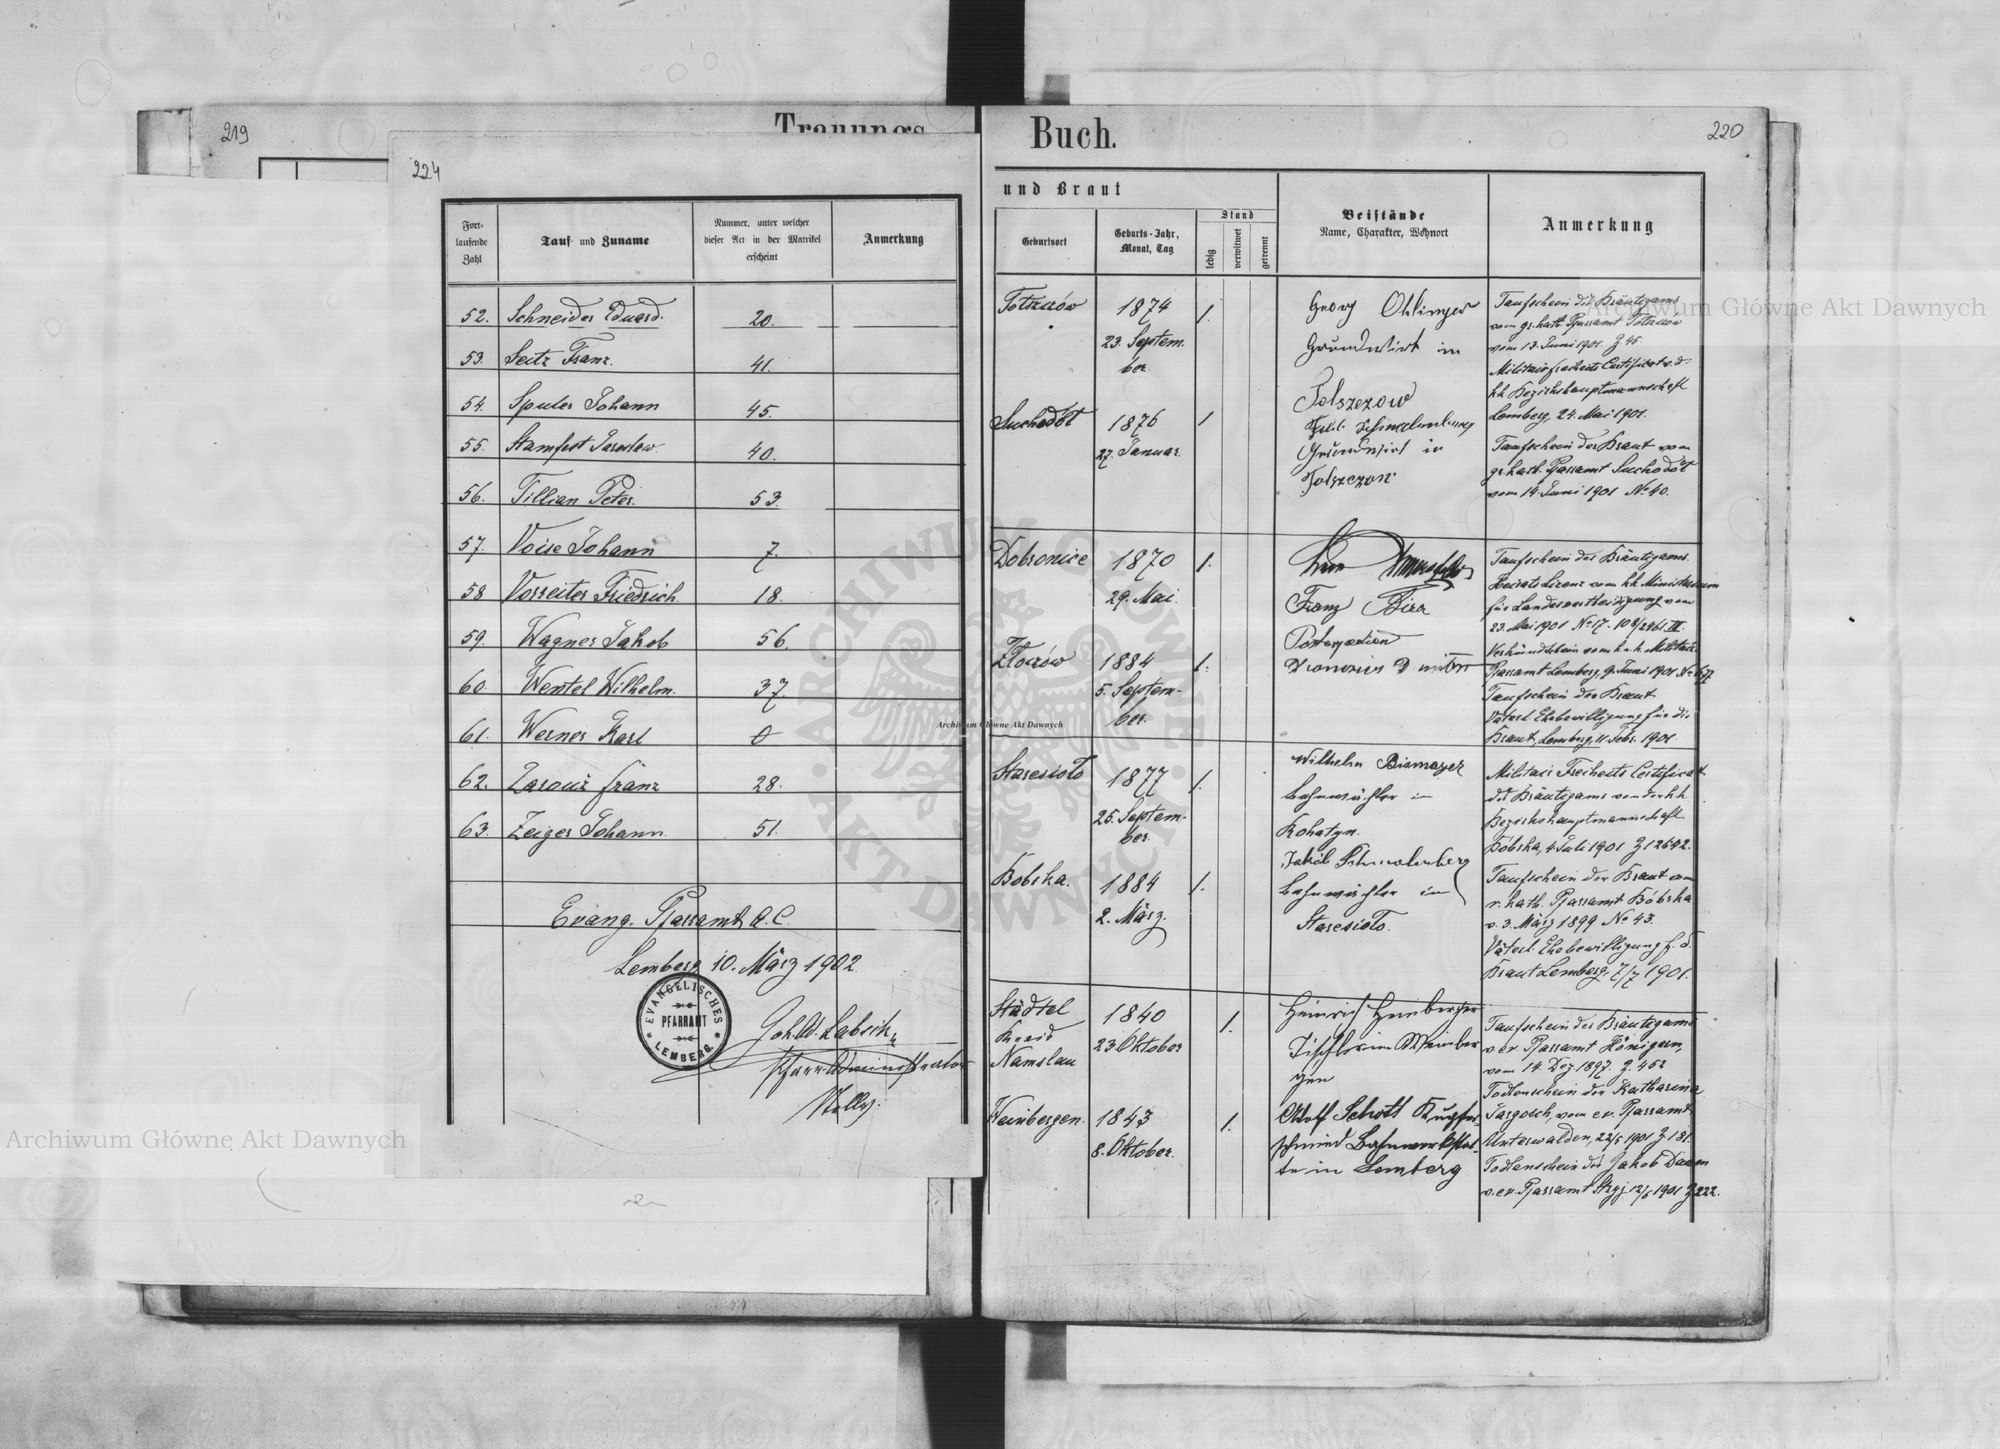 219
Trauungs
224
Fort-
laufende
Zahl
Tauf- und Zuname
Nummer, unter welcher
dieser Act in der Matrikel
erscheint
Anmerkung
52. Schneider Eduard. 20.
53. Seitz Franz. 41.
54. Spuler Johann 45.
55. Stamfest Jaroslaw. 40.
56. Tillian Peter. 53.
57. Voise Johann 7
58 Vorreiter Friedrich. 18.
59. Wagner Jakob 56.
60. Wentel Wilhelm. 37.
61. Werner Karl
62. Zarouż Franz 28.
63. Zeiger Johann 51.
Evang. Pfarramt A. C.
Lemberg 10. März 1902
EVANGELISCHES
PFARRAMT
LEMBERG
Pfarr-Administrator
Buch.
220
und Braut
Geburtsort
Geburts-Jahr,
Monat, Tag
Stand
ledig
verwitwet
getrennt
Beistände
Name, Charakter, Wohnort
Anmerkung
1874
23. Septem-
ber.
1.
Georg Ohlinger
Grundwirt in
Tolszczow
Taufschein des Bräutigams
vom gr. kath. Pfarramt
vom 13. Juni 1901. Z 45.
Militairfreiheits Certificat v. d.
k.k. Bezirkshauptmannschaft
Lemberg, 24. Mai 1901.
Suchodół
1876
27. Januar.
1
Grundwirt in
Taufschein der Braut vom
gr. kath. Pfarramt Suchodół
vom 14. Juni 1901 No 40.
Dobronice
1870
29. Mai.
1.
Franz
Taufschein des Bräutigams.
Heirats Lizenz vom k.k. Ministerium
für Landesvertheidigung vom
23. Mai 1901 No 17.
Verkündschein vom k.u.k. Militär-
Pfarramt Lemberg, 9. Juni 1901 No
Złoczów
1884
5. Septem-
ber.
1.
Taufschein der Braut
Väterl. Ehebewilligung für die
Braut, Lemberg, 11. Febr. 1901
Staresioło
1877
25. Septem-
ber.
1.
Wilhelm Biemayer
Bahnwächter in
Rohatyn.
Militair Freiheits Certificat
des Bräutigams von der k.k.
Bezirkshauptmannschaft
Bóbrka, 4 Juli 1901 Z 12602.
Bobrka.
1884
2. März.
1.
Jakob Schmalenberg
Bahnwächter in
Staresioło.
Taufschein der Braut vom
r. kath. Pfarramt Bóbrka
v. 3. März 1899 No 43.
Väterl. Ehebewilligung f. d.
Braut Lemberg, 7/7 1901.
Städtel
Kreis
Namslau
1840
23 Oktober
1.
Heinrich Heuberger
Tischler in Weinber
gen
Taufschein des Bräutigams
v. ev. Pfarramt Hönigern,
vom 14. Dez 1897. Z. 452
Todtenschein der Katharina
vom ev. Pfarramt
Unterwalden, 22/5 1901 Z 181.
Weinbergen.
1843
8. Oktober.
1.
Adolf Schott Kupfer-
schmied Bahnwerkstät-
te in Lemberg
Todtenschein des Jakob Daum
v. ev. Pfarramt Stryj 12/6 1901 Z 222.
Archiwum Główne Akt Dawnych
Archiwum Główne Akt Dawnych
Archiwum Główne Akt Dawnych
ARCHIWUM GŁÓWNE AKT DAWNYCH